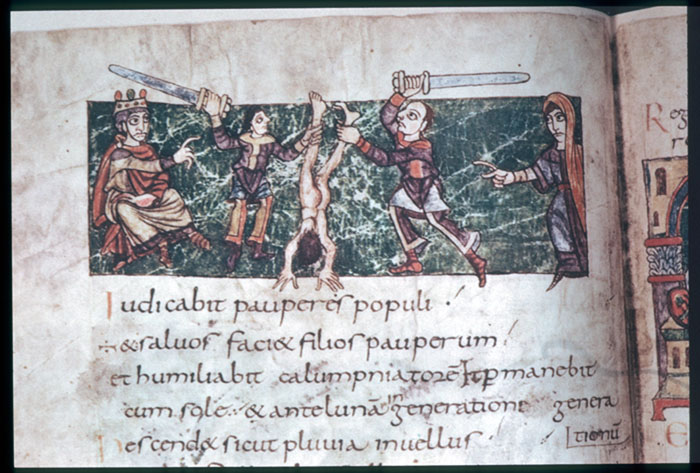 Iudicabit pauperes populi
÷ & saluos faci& filios pauperum
et humiliabit calumpniatorē Itp manebit
cum sole. & antelunā generatione genera
tionū
Descend& sicut pluuia inuellus